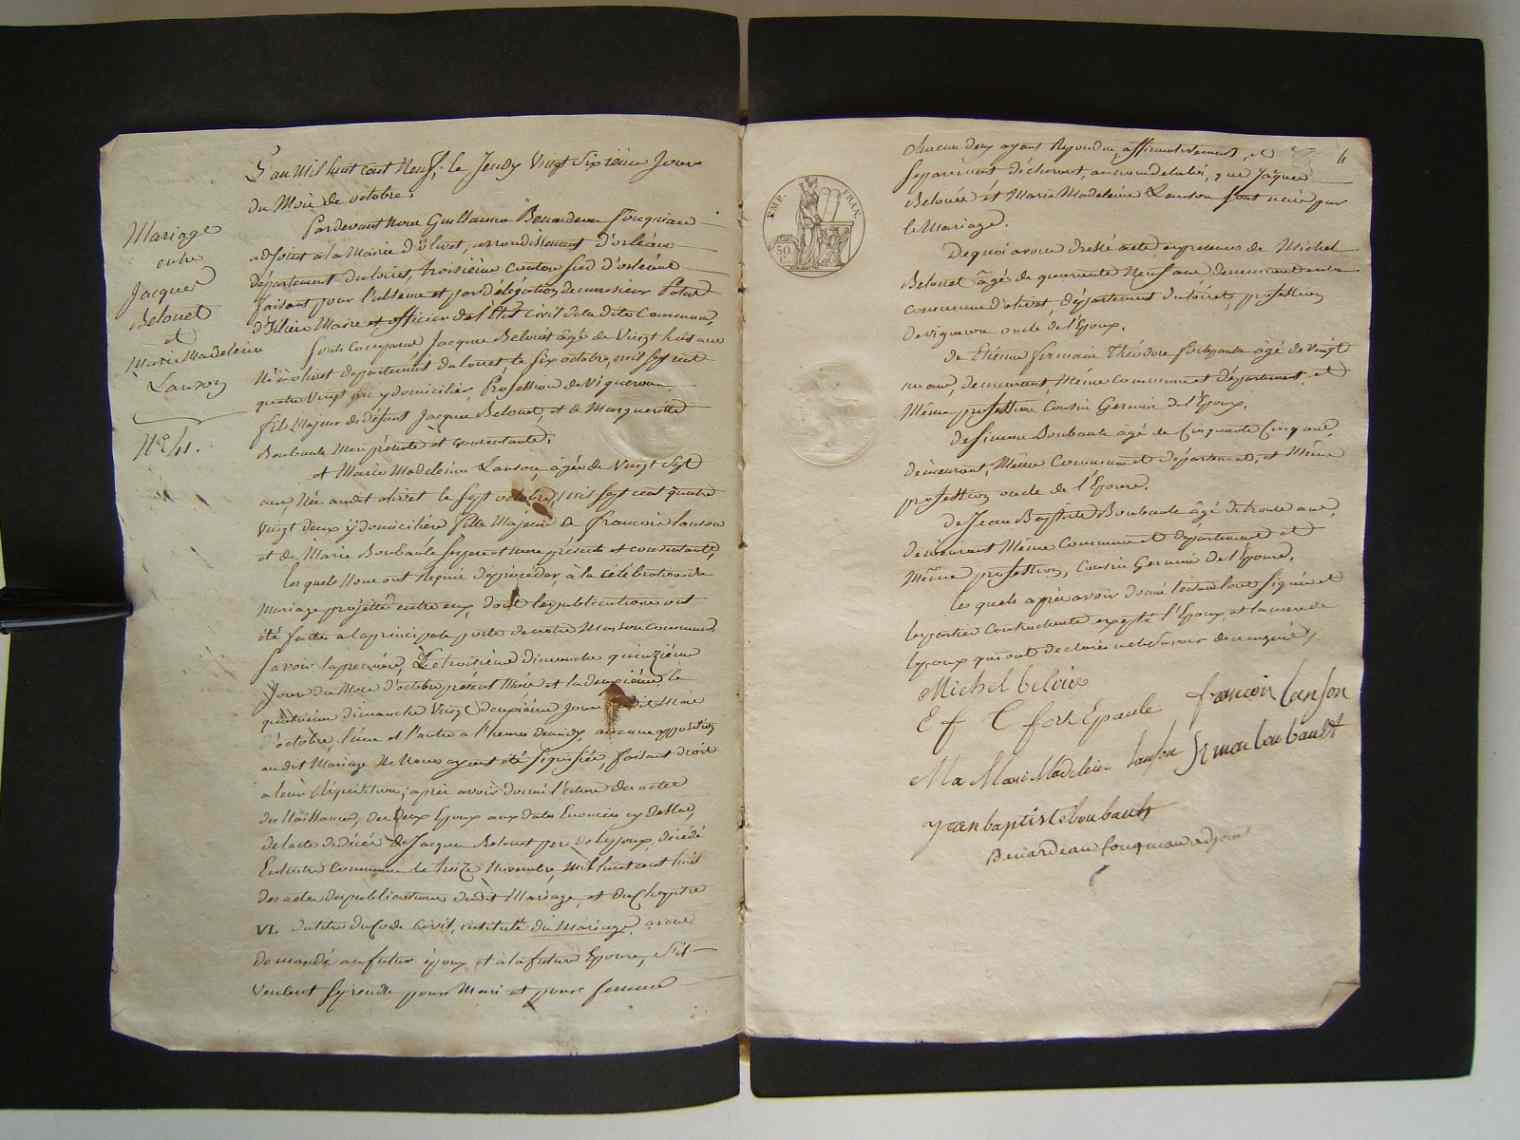 Mariage
entre
Jacques
Belouet
et
Marie Madeleine
Lanson
N° 41.
L'an Mil huit cent Neuf, le Jeudy Vingt Sixième Jour
du Mois de octobre,
Pardevant Nous Guillaume Benardeau Fouqueau
adjoint à la Mairie d'olivet, arrondissement d'orléans
département du loiret, troisième canton sud d'orléans
faisant pour l'absence et par délégation de monsieur
d'Illiers Maire et officier de l'Etat civil de la dite Commune,
sont comparus Jacques Belouet âgé de Vingt huit ans
Né à olivet département du loiret, le six octobre, mil sept cent
quatre Vingt y domicilié, Profession de Vigneron
fils Majeur de défunt Jacques Belouet, et de Marguerite
Boubault Mère présente et consentante,
et Marie Madeleine Lanson, âgée de Vingt Sept
ans, Née audit olivet le sept octobre, mil sept cent quatre
Vingt deux y domiciliée fille Majeure de francois lanson
et de Marie Boubault ses père et mere présents et consentants,
les quels Nous ont requis de procéder à la célébration du
Mariage projetté entre eux, dont les publications ont
été faites a la principale porte de notre Maison commune,
Savoir la première, Le troisième dimanche quinzième
Jour du Mois d'octobre présent Mois et la deuxième le
quatrième dimanche Vingt deuxième Jour dudit Mois
d'octobre, l'une et l'autre a l'heure de midy aucune opposition
au dit Mariage Ne Nous ayant été Signifiée, faisant droit
a leur réquisition, après avoir donné lecture des actes
de Naissance, des deux Epoux aux dates Enoncées cy dessus,
de l'acte de décès de Jacques Belouet père de l'époux, décédé
En notre Commune le treize Novembre, mil huit cent huit
des actes de publications dudit Mariage, et du Chapitre
VI. du titre du Code Civil, intitulé du Mariage, avons
demandé au futur époux et à la future Epouse, s'ils
veulent se prendre pour Mari et pour femme
4
EMP. FRAN.
50
chacun deux ayant répondu affirmativement, et
séparément déclarons, au nom de la loi, que Jacques
Belouet et Marie Madeleine Lanson sont unis par
le Mariage.
De quoi avons dressé acte en presence de Michel
Belouet âgé de quarante Neuf ans demeurant en la
commune d'olivet, département du loiret, profession
de vigneron oncle de l'Epoux.
de Etienne Germain Théodore fortepaule âgé de Vingt
un ans, demeurant Même commune et département, et
Même profession Cousin Germain de l'Epoux,
de Simon Boubault âgé de Cinquante Cinq ans,
demeurant, Même Commune et département, et Même
profession oncle de l'Epouse.
de Jean Baptiste Boubault âgé de trente ans,
demeurant Même Commune et département et
Même profession, Cousin Germain de l'Epouse,
les quels après avoir donné lecture l'ont signée et
les parties contractantes excepté l'Epoux, et la mere de
l'époux qui ont déclarés ne le savoir de ce enquis,
Michel beloüe
E f C fortEpaule francoin lanson
Ma Marie Madeleine lanson Simon bou bault
Jean baptiste boubault
Benardeau fouqueau adjoint